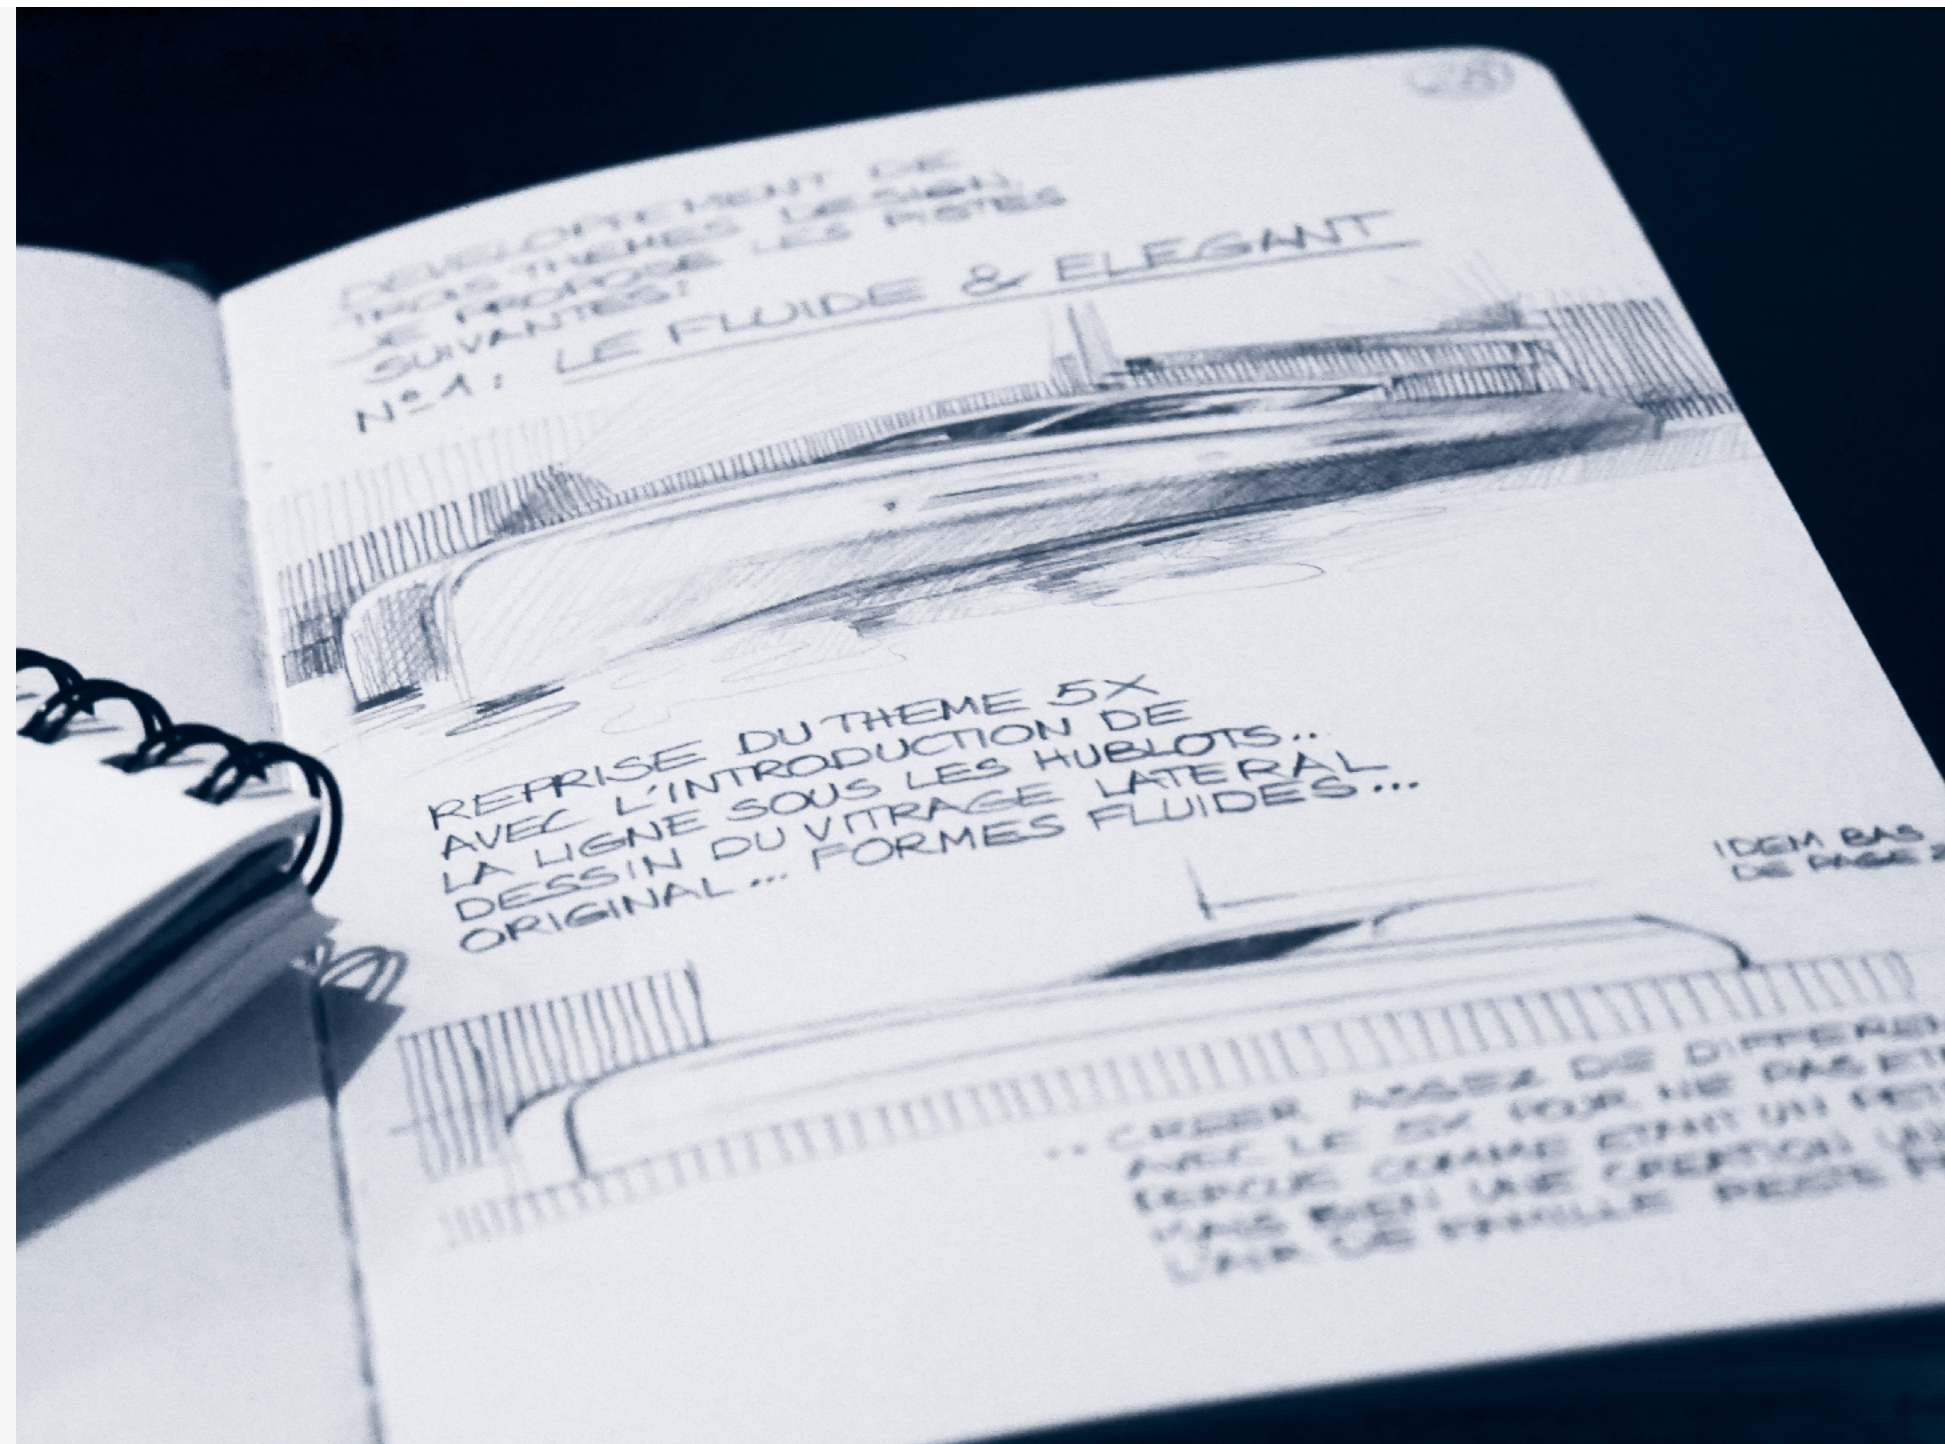 DEVELOPPEMENT DE
TROIS THEMES DESIGN
JE PROPOSE LES PISTES
SUIVANTES:
Nº1: LE FLUIDE & ELEGANT
REPRISE DU THEME 5X
AVEC L'INTRODUCTION DE
LA LIGNE SOUS LES HUBLOTS..
DESSIN DU VITRAGE LATERAL
ORIGINAL... FORMES FLUIDES...
IDEM BAS
DE PAGE
.. CREER ASSEZ DE DIFFEREN
AVEC LE 5X POUR NE PAS ET
PERCUE COMME ETANT UN PET
MAIS BIEN UNE CREATION UN
L'AIR DE FAMILLE RESTE